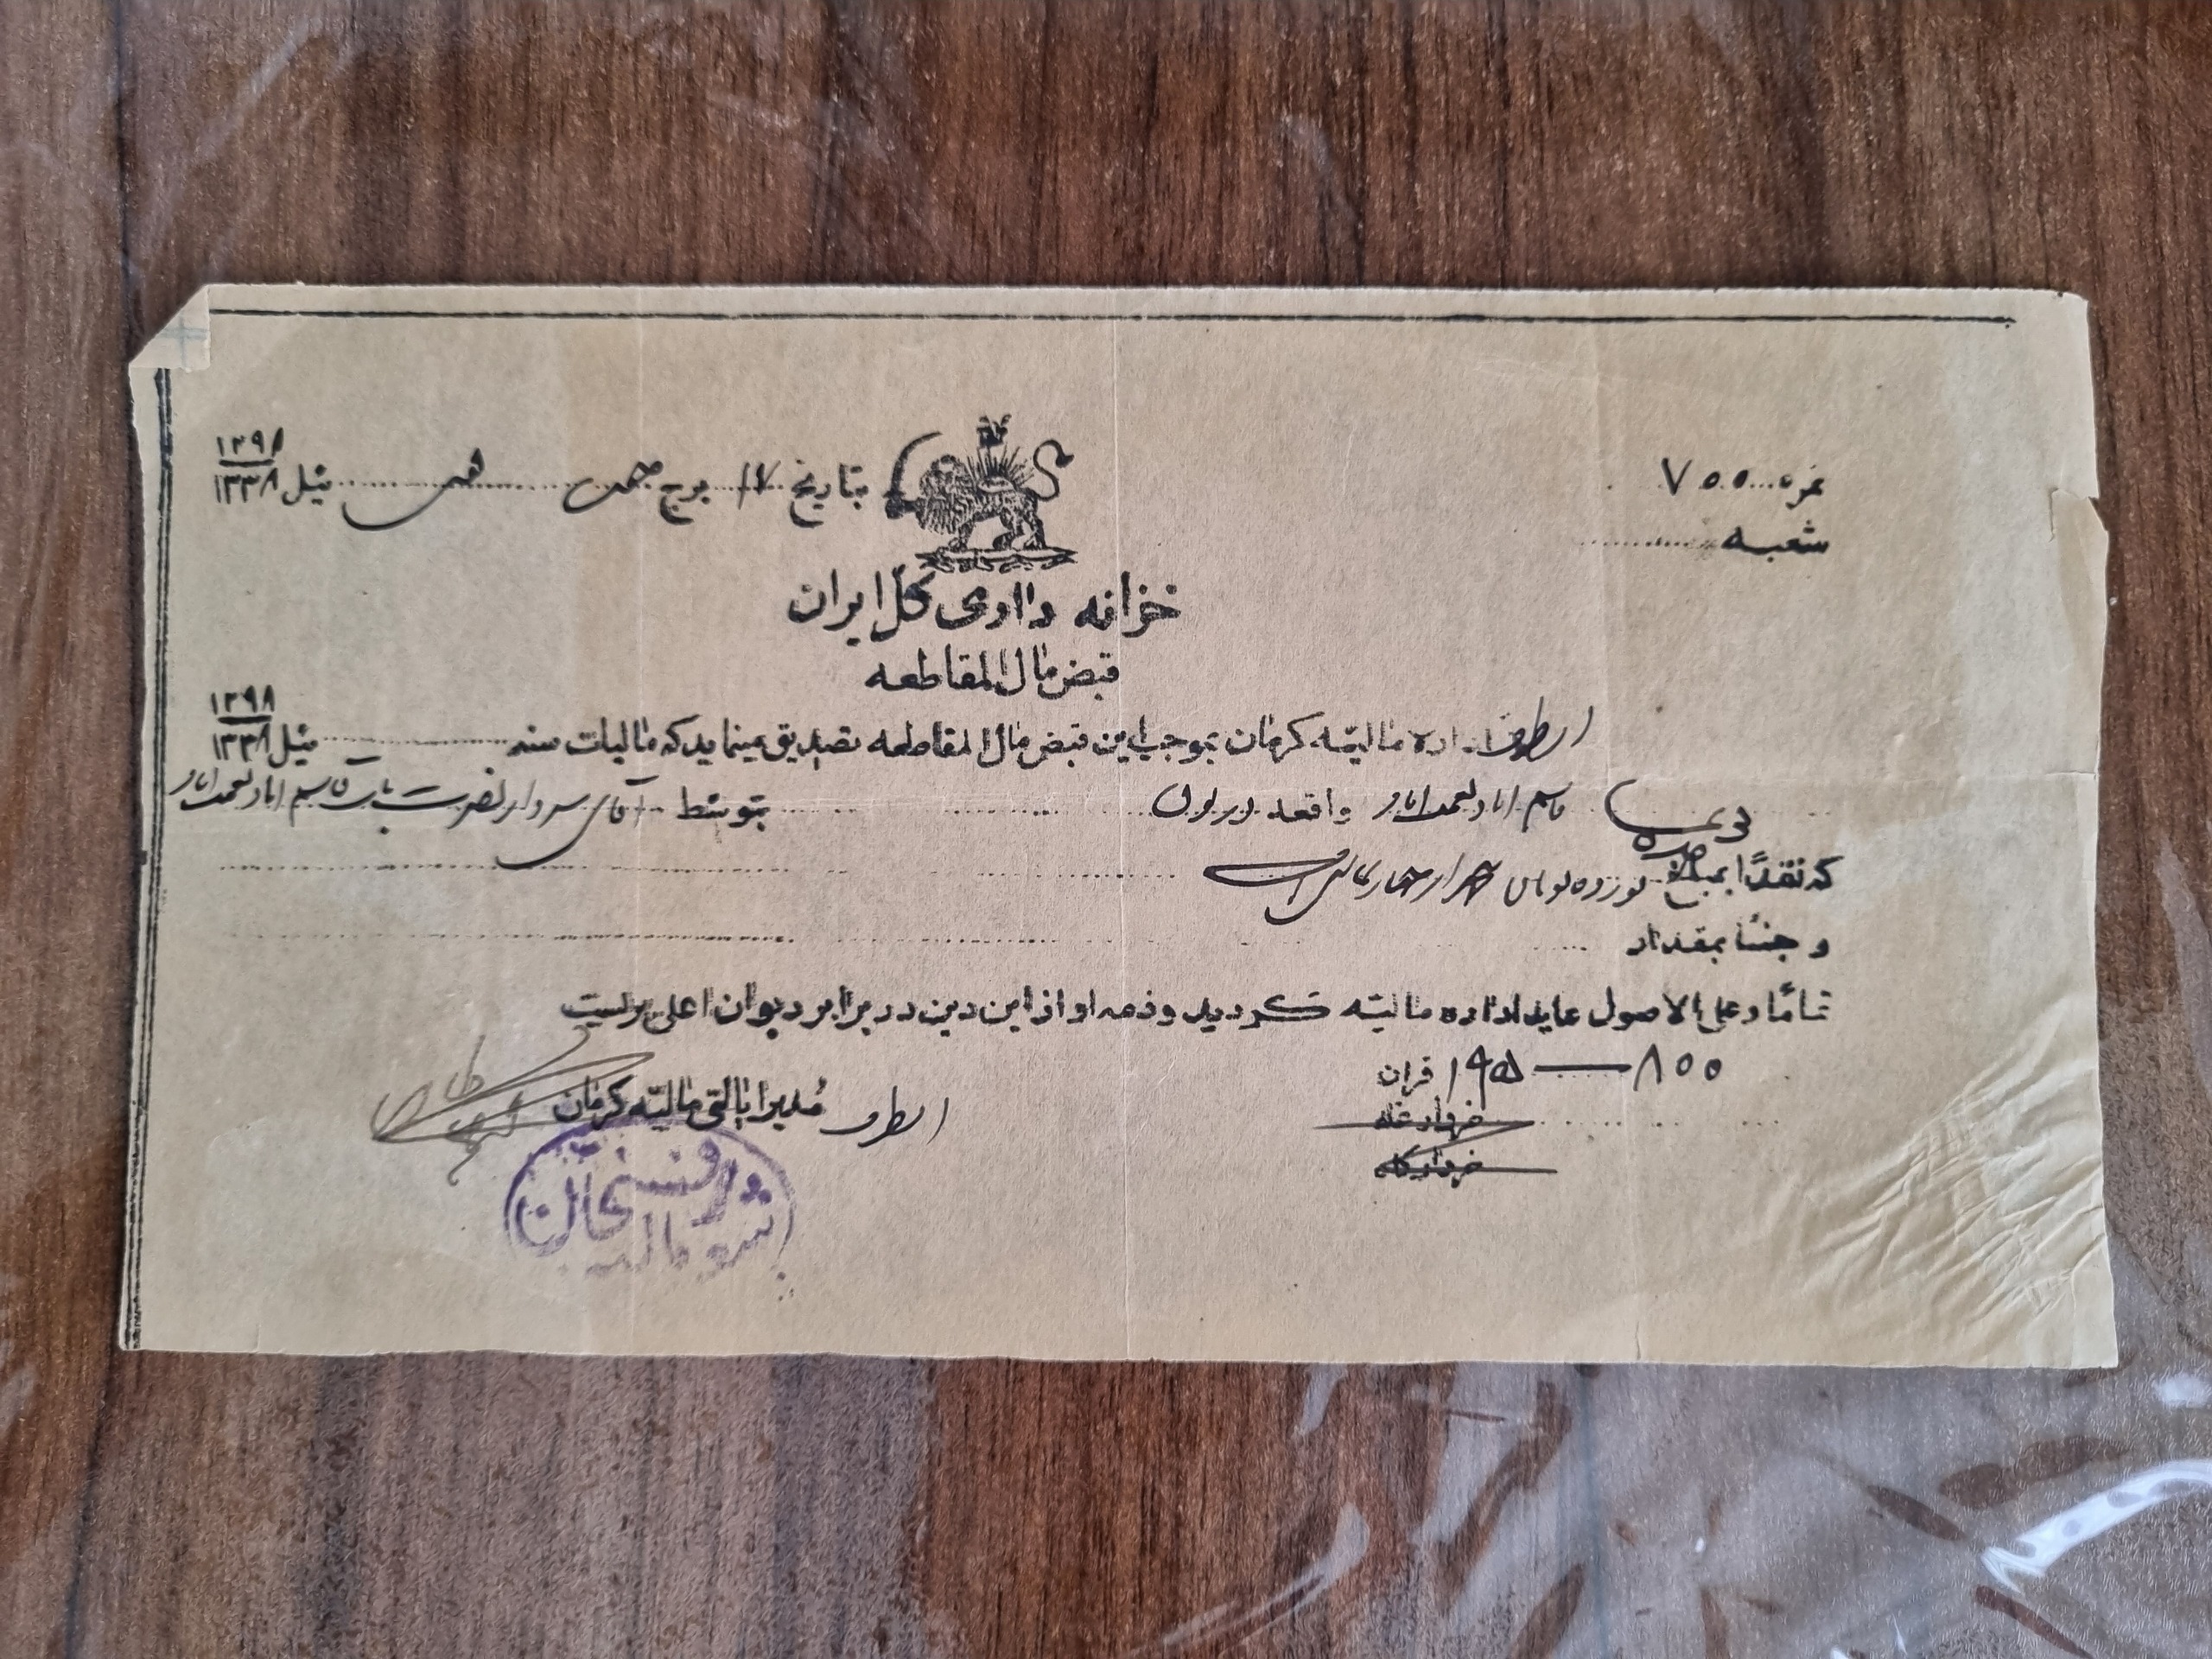 نمره ۷۵۵
شعبه
بتاریخ ۱۷ برج ئیل ۱۲۹۸
۱۳۳۸
خزانه داری کل ایران
قبض مال المقاطعه
از طرف اداره مالیّه کرمان بموجب این قبض مال المقاطعه تصدیق مینماید که مالیات سنه ئیل ۱۲۹۸
۱۳۳۸
قاسم اباد واقعه در بتوسط آقای سردار نصرت بابت قاسم اباد
که نقداً بمبلغ نوزده تومان
و جنساً بمقدار
تماماً و علی الاصول عاید اداره مالیّه گردید و ذمه او از این دین در برابر دیوان اعلی بریست
۱۹۵ — ۸۵۵ قران
خروار غله
خروار کاه
از طرف مدیر ایالتی مالیّه کرمان
رفسنجان
مالیه